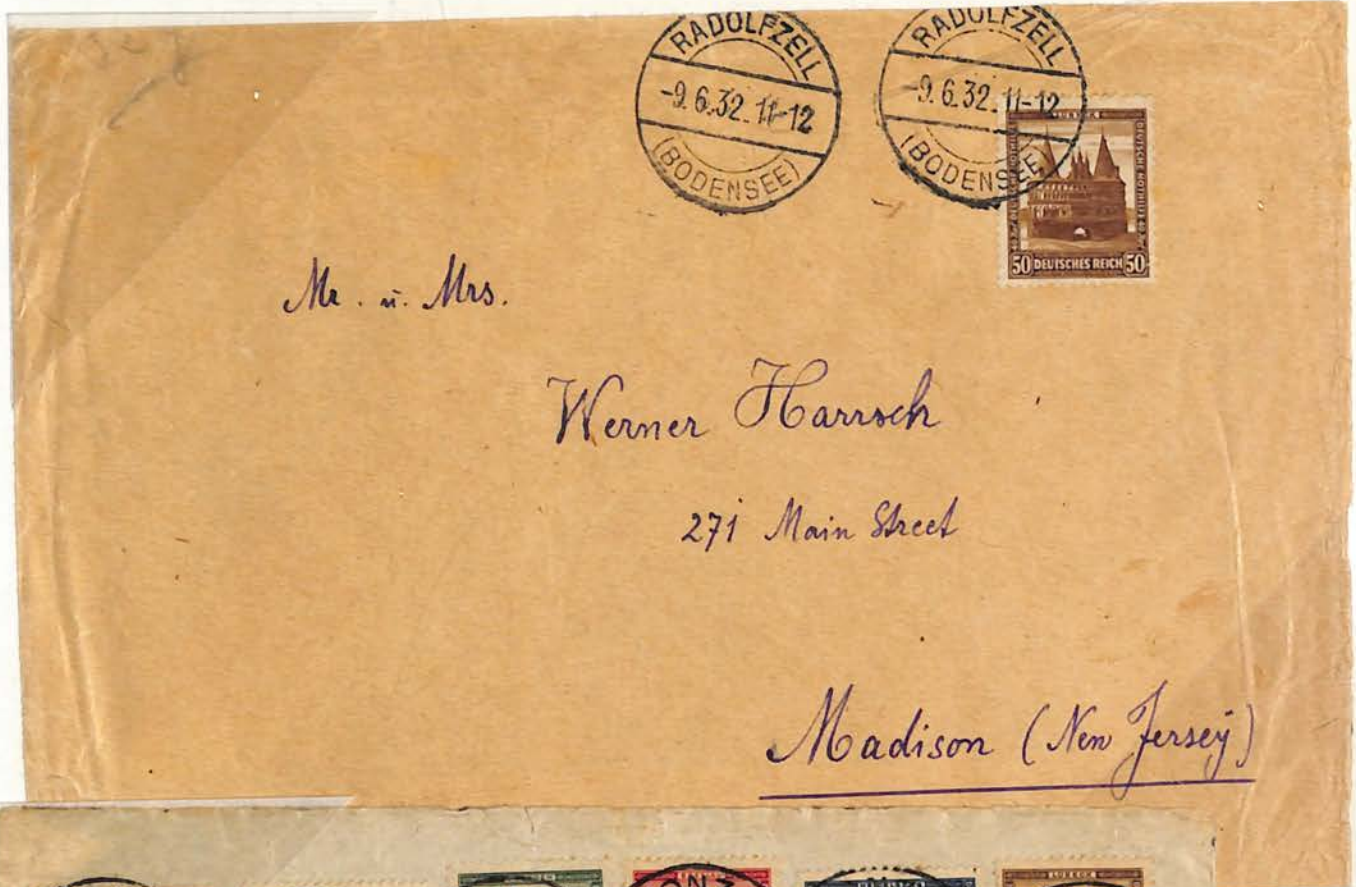 RADOLFZELL
-9.6.32.11-12
(BODENSEE)
RADOLFZELL
-9.6.32.11-12
(BODENSEE)
LÜBECK
DEUTSCHE NOTHILFE
50 DEUTSCHES REICH 50
Mr. u. Mrs.
Werner Harrsch
271 Main Street
Madison (New Jersey)
LÜBECK